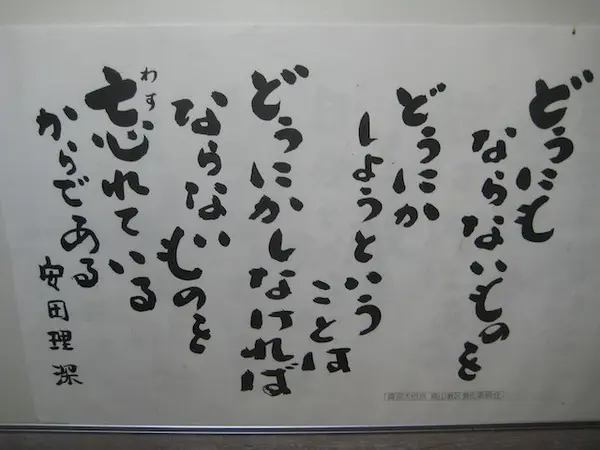 どうにも
ならないものを
どうにか
しようという
ことは
どうにかしなければ
ならないものを
忘れている
わす
からである
安田理深